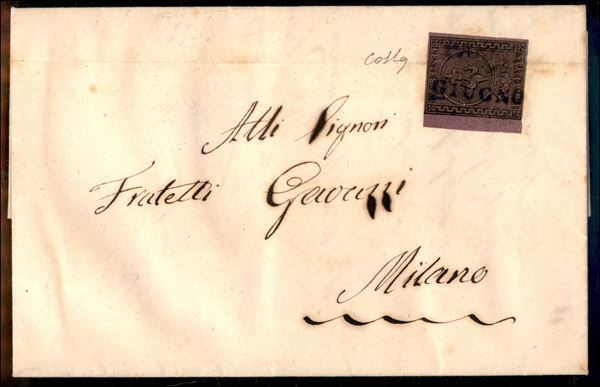 25
GIUGNO
Alli Signori
Fratelli Gavazzi
Milano